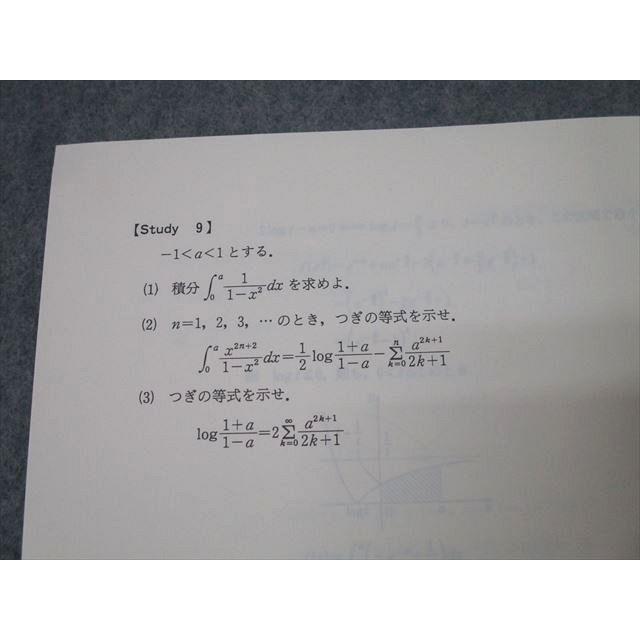 【Study 9】
−1<a<1とする．
(1) 積分∫₀ᵃ 1/(1−x²) dx を求めよ．
(2) n=1，2，3，…のとき，つぎの等式を示せ．
∫₀ᵃ x²ⁿ⁺²/(1−x²) dx=1/2 log (1+a)/(1−a) − Σₖ₌₀ⁿ a²ᵏ⁺¹/(2k+1)
(3) つぎの等式を示せ．
log (1+a)/(1−a) =2 Σₖ₌₀^∞ a²ᵏ⁺¹/(2k+1)